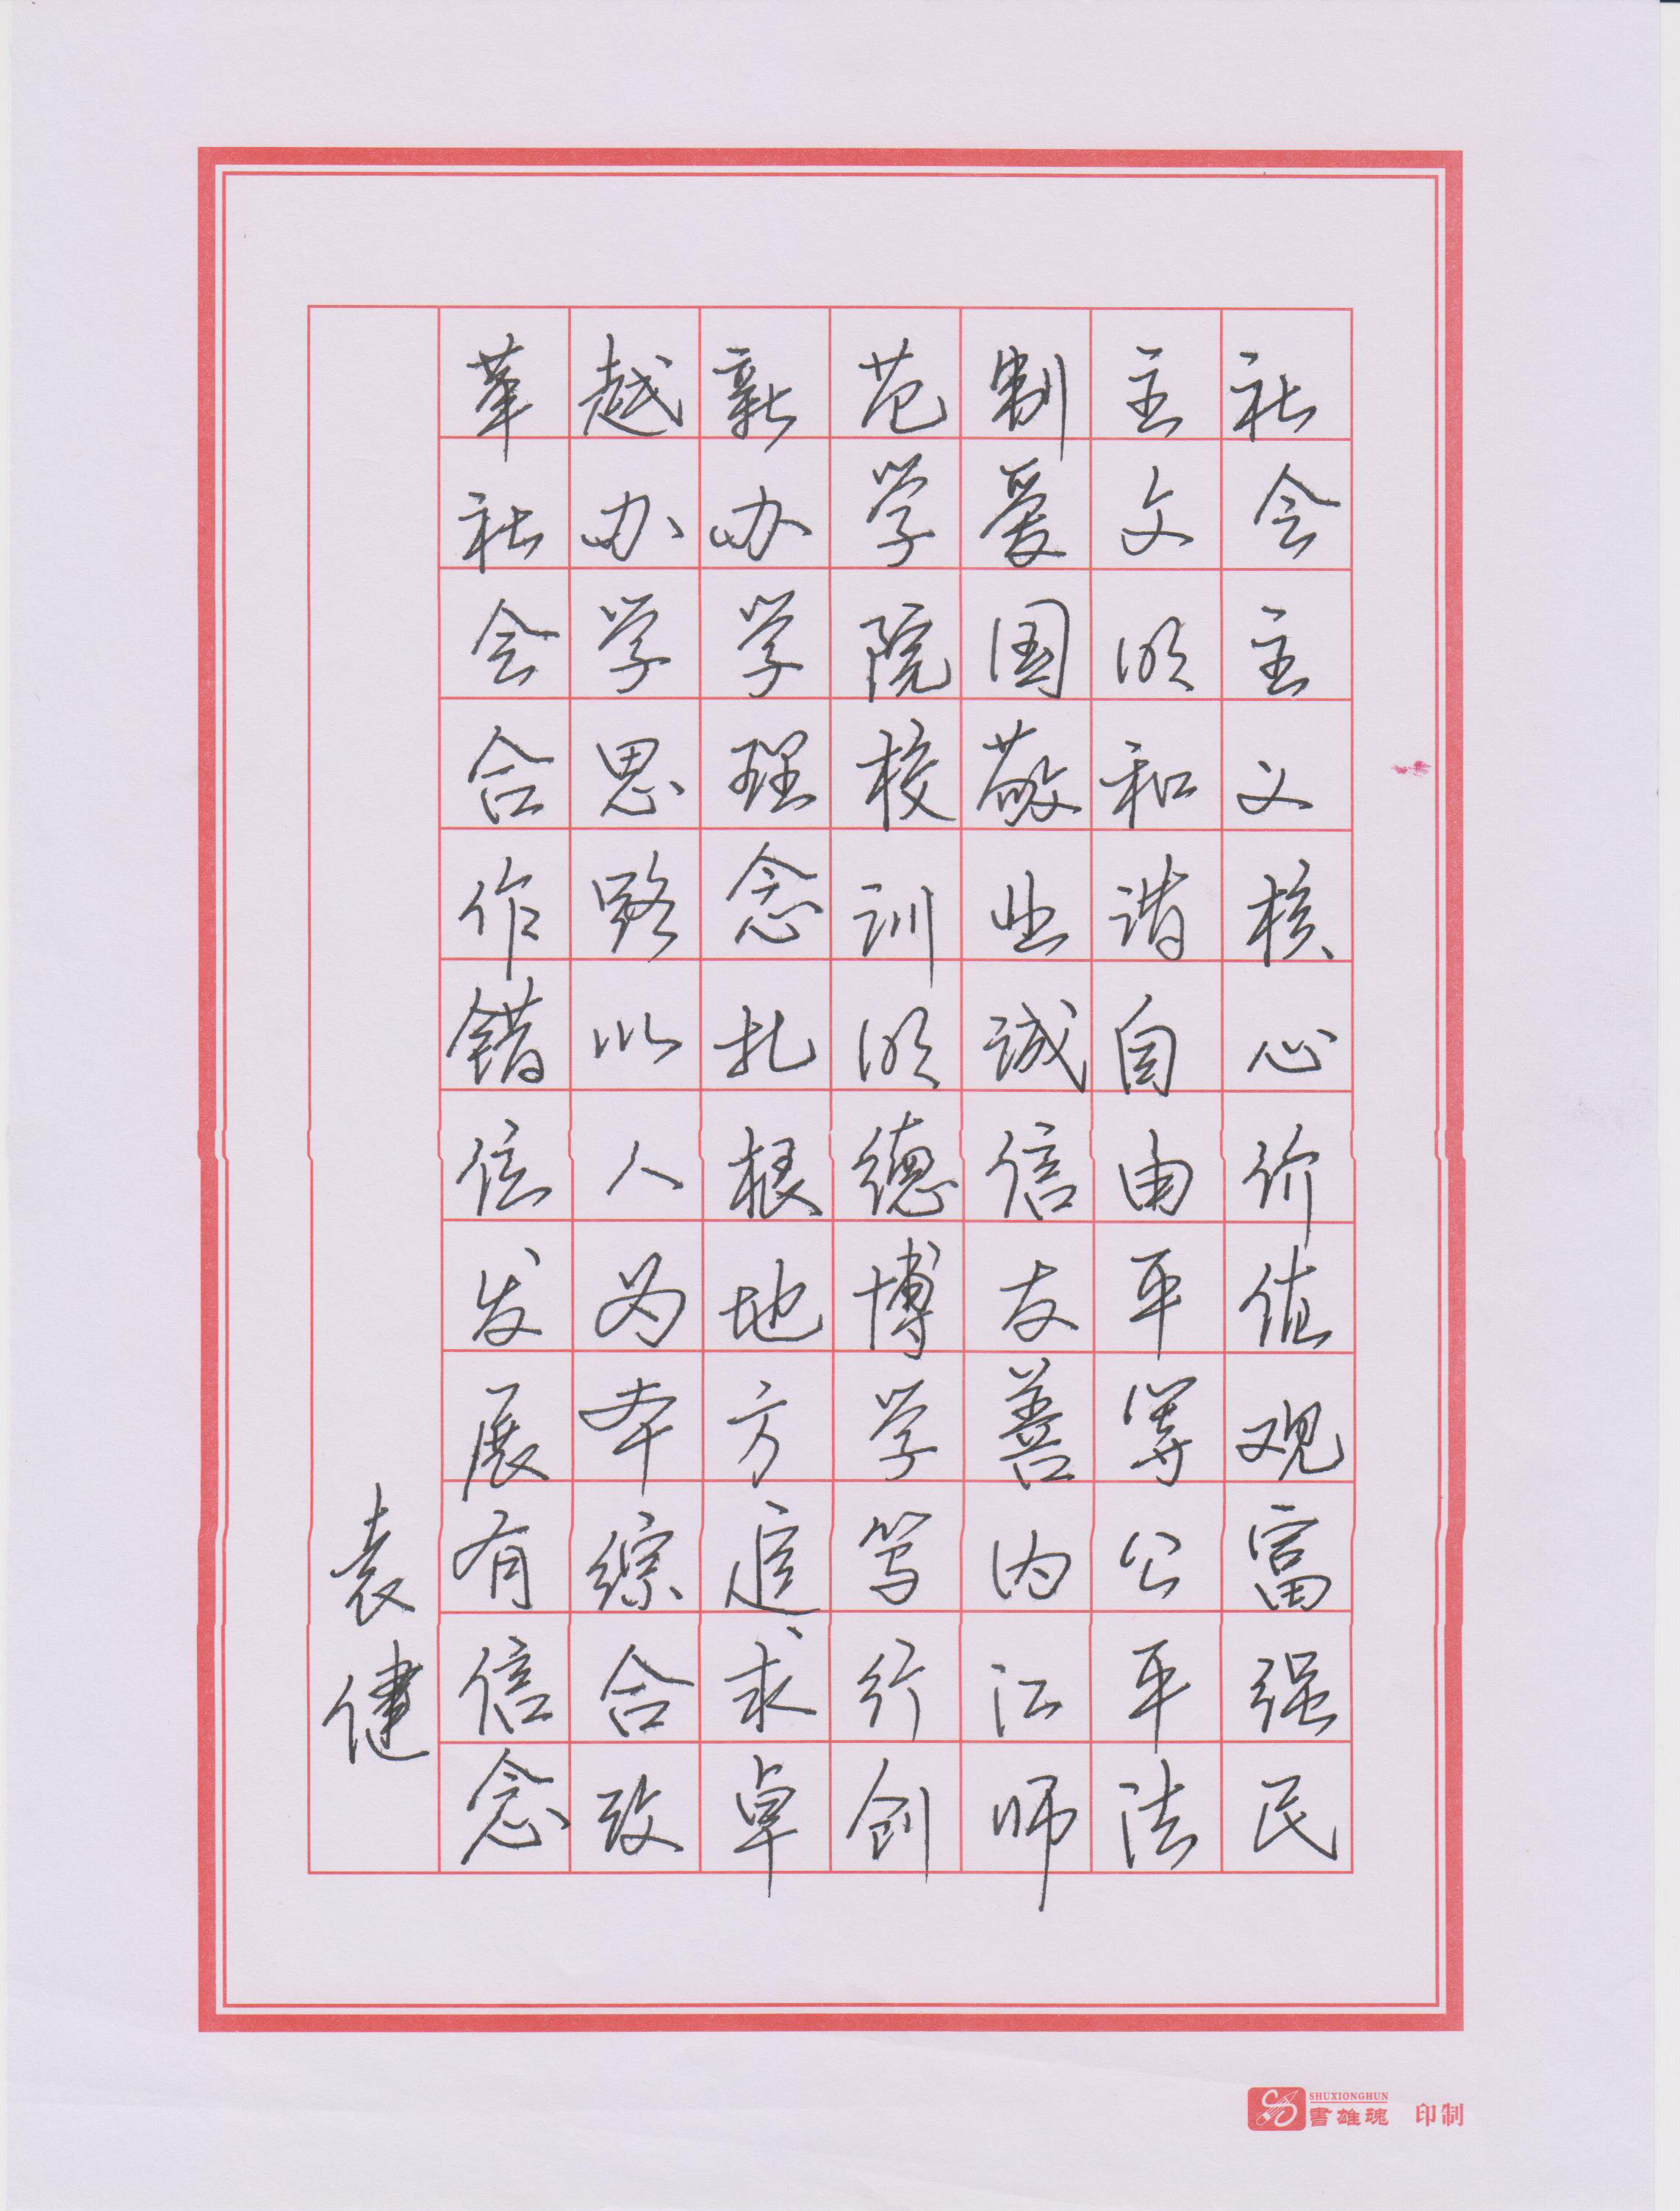 社会主义核心价值观富强民
主文明和谐自由平等公平法
制爱国敬业诚信友善内江师
范学院校训明德博学笃行创
新办学理念扎根地方追求卓
越办学思路以人为本综合改
革社会合作错位发展有信念
袁健
SHUXIONGHUN
書雄魂 印制